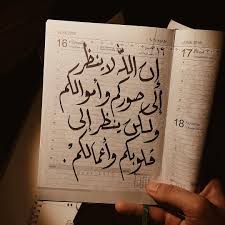 إن الله لا ينظر
إلى صوركم وأموالكم
ولكن ينظر إلى
قلوبكم وأعمالكم.
16
17
18